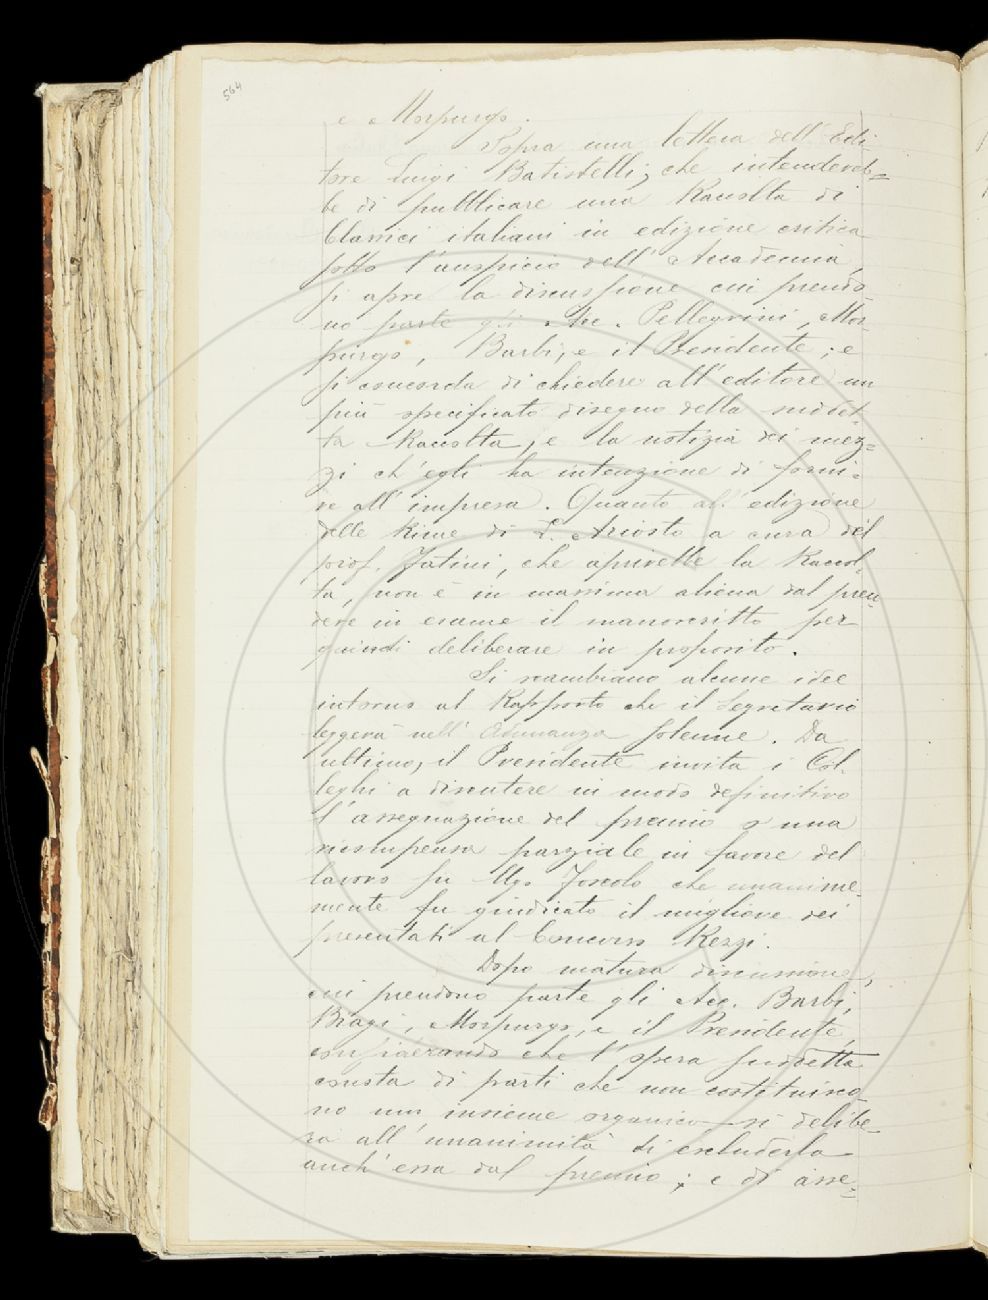 564
e Morpurgo.
Sopra una lettera dell'Edi-
tore Luigi Batistelli, che intendereb=
be di pubblicare una Raccolta di
Classici italiani in edizione critica
sotto l'auspicio dell'Accademia,
si apre la discussione cui prendo-
no parte gli Acc. Pellegrini, Mor-
purgo, Barbi, e il Presidente; e
si concorda di chiedere all'editore un
più specificato disegno della suddet-
ta Raccolta, e la notizia dei mez=
zi ch'egli ha intenzione di forni-
re all'impresa. Quanto all'edizione
delle Rime di L. Ariosto a cura del
prof. Fatini, che aprirebbe la Raccol-
ta, non è in massima aliena dal pren-
dere in esame il manoscritto per
quindi deliberare in proposito.
Si scambiano alcune idee
intorno al Rapporto che il Segretario
leggerà nell'Adunanza solenne. Da
ultimo, il Presidente invita i Col-
leghi a discutere in modo definitivo
l'assegnazione del premio o una
ricompensa parziale in favore del
lavoro su Ugo Foscolo che unanime-
mente fu giudicato il migliore dei
presentati al Concorso Rezzi.
Dopo matura discussione,
cui prendono parte gli Acc. Barbi,
Biagi, Morpurgo, e il Presidente,
considerando che l'opera suddetta
consta di parti che non costituisco-
no un insieme organico si delibe-
ra all'unanimità di escluderla
anch'essa dal premio; e di asse-